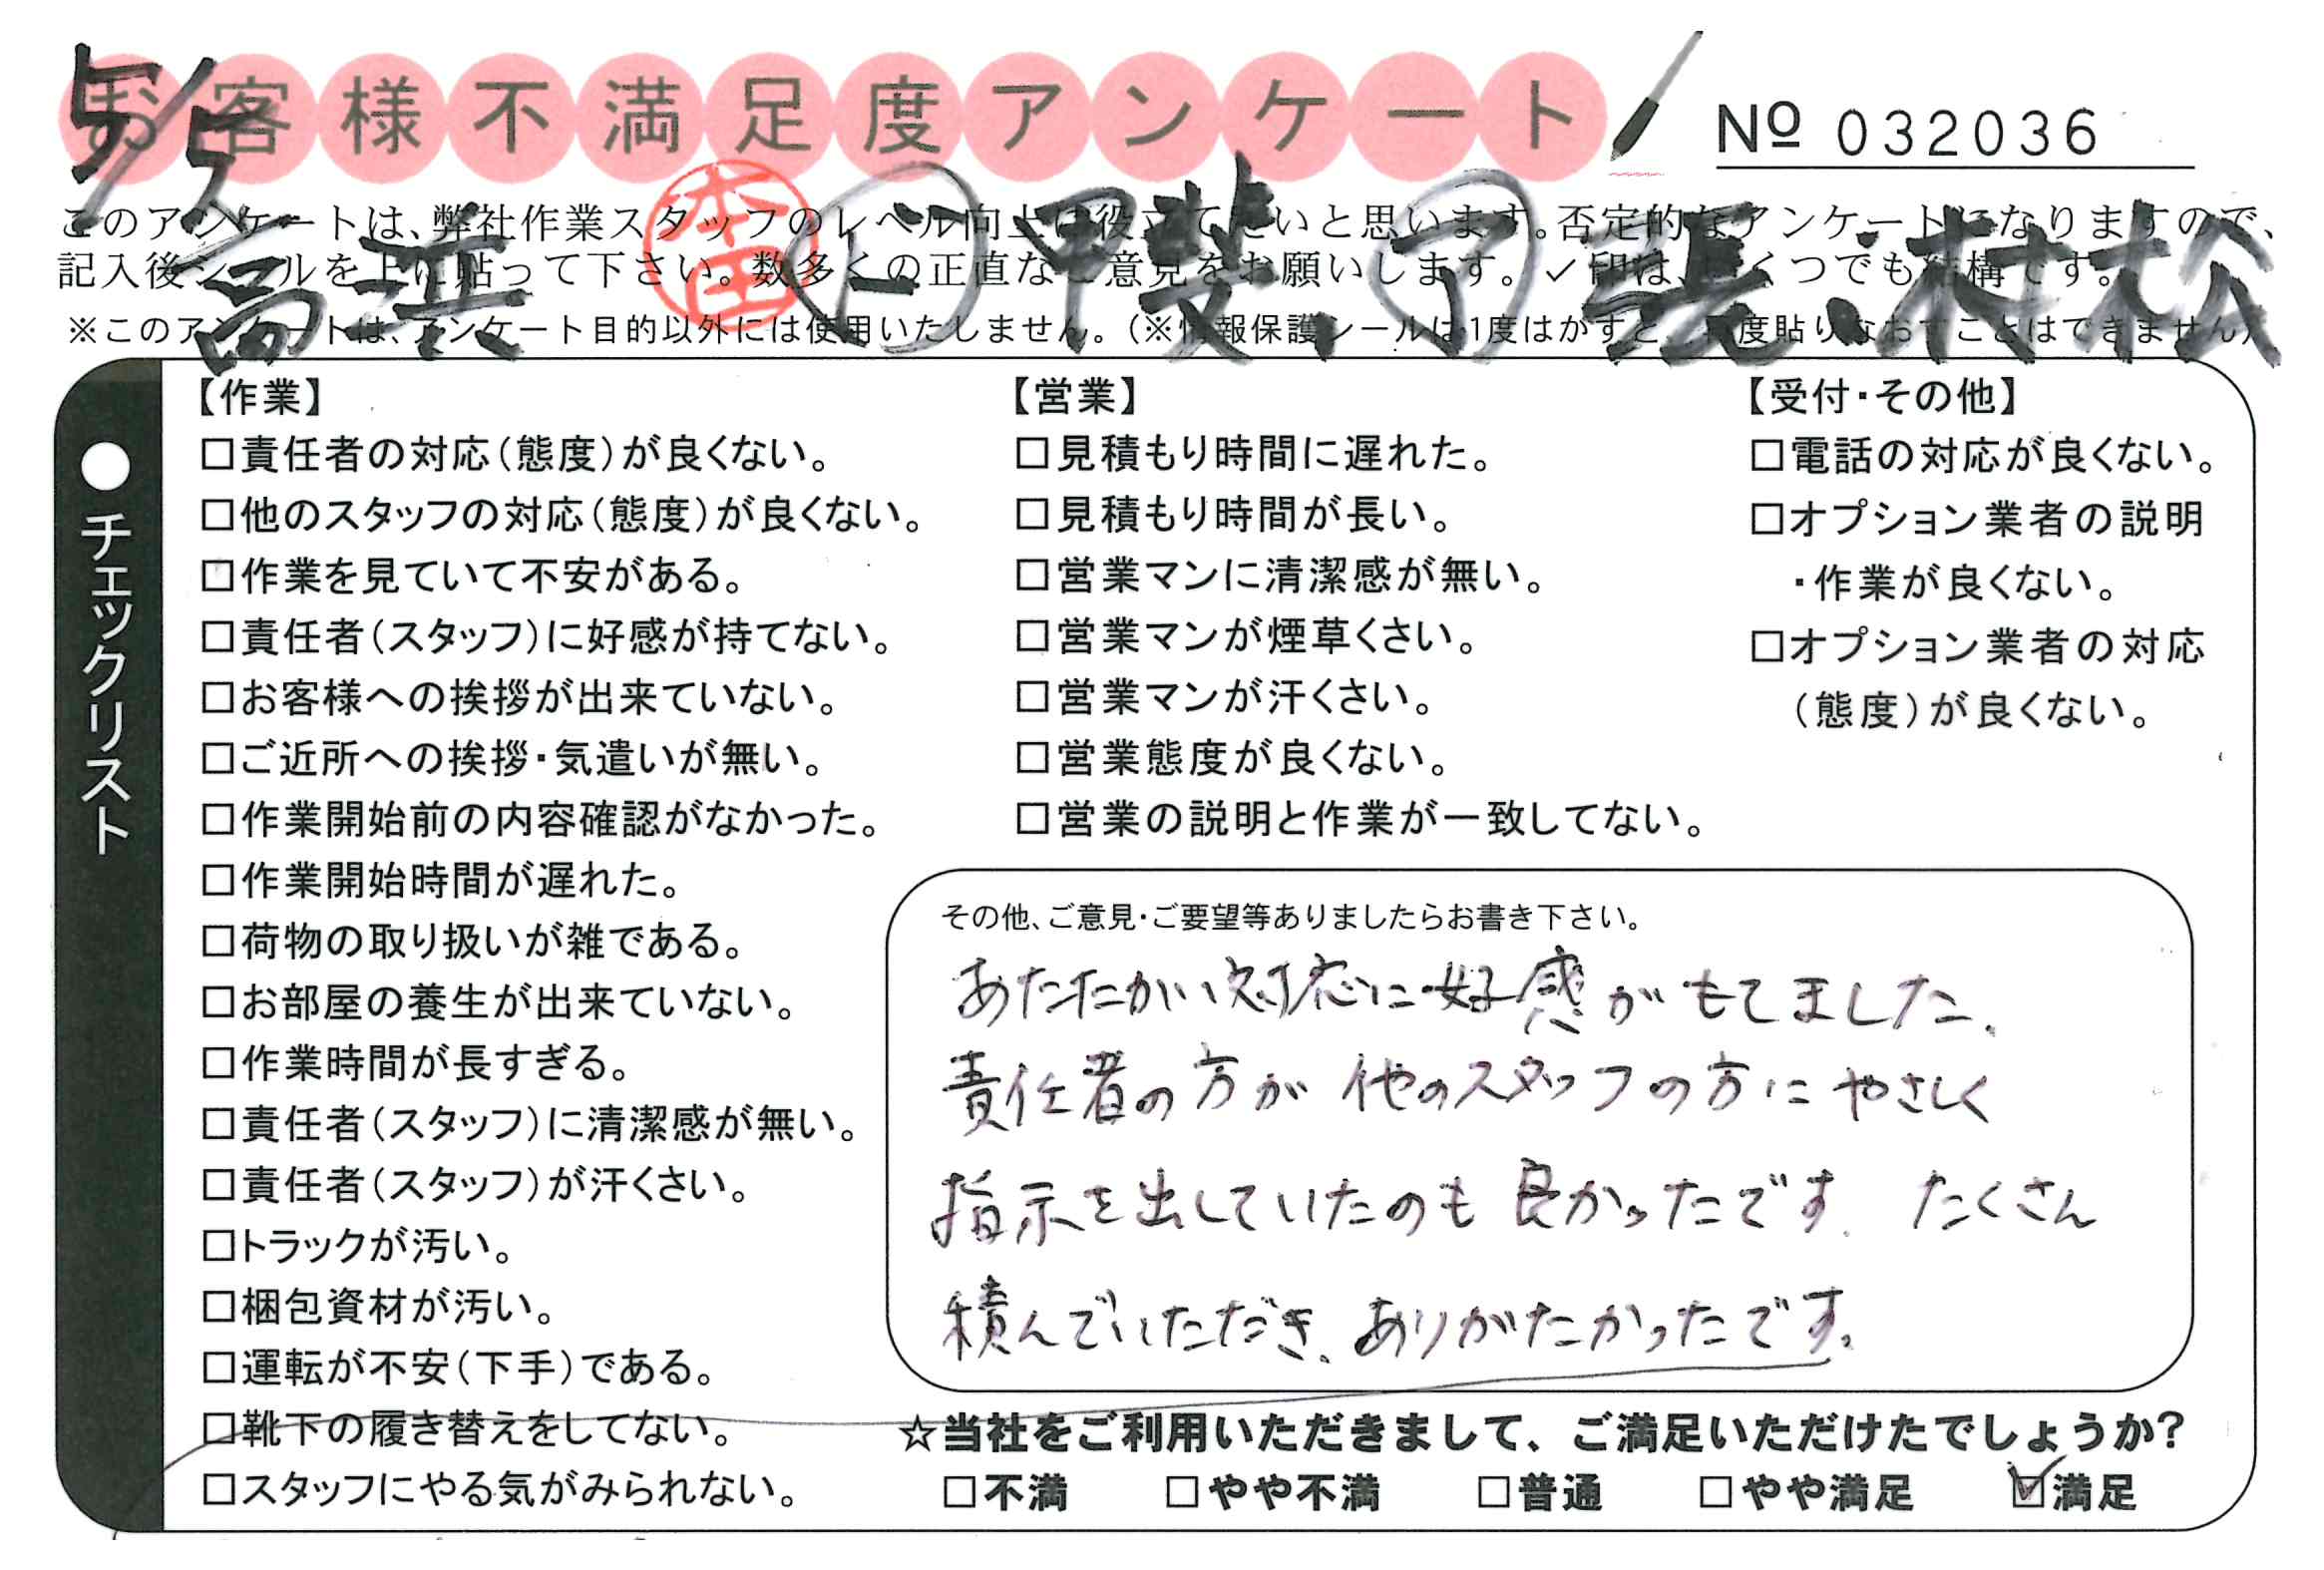 お客様不満足度アンケート
№ 032036
5/5
このアンケートは、弊社作業スタッフのレベル向上に役立てたいと思います。否定的なアンケートになりますので、
記入後シールを上に貼って下さい。数多くの正直なご意見をお願いします。✓印は、いくつでも結構です。
※このアンケートは、アンケート目的以外には使用いたしません。(※情報保護シールは1度はがすと、再度貼りなおすことはできません)
高浜 本田 甲斐、ア 長、村松
チェックリスト
【作業】
□責任者の対応(態度)が良くない。
□他のスタッフの対応(態度)が良くない。
□作業を見ていて不安がある。
□責任者(スタッフ)に好感が持てない。
□お客様への挨拶が出来ていない。
□ご近所への挨拶・気遣いが無い。
□作業開始前の内容確認がなかった。
□作業開始時間が遅れた。
□荷物の取り扱いが雑である。
□お部屋の養生が出来ていない。
□作業時間が長すぎる。
□責任者(スタッフ)に清潔感が無い。
□責任者(スタッフ)が汗くさい。
□トラックが汚い。
□梱包資材が汚い。
□運転が不安(下手)である。
□靴下の履き替えをしてない。
□スタッフにやる気がみられない。
【営業】
□見積もり時間に遅れた。
□見積もり時間が長い。
□営業マンに清潔感が無い。
□営業マンが煙草くさい。
□営業マンが汗くさい。
□営業態度が良くない。
□営業の説明と作業が一致してない。
【受付・その他】
□電話の対応が良くない。
□オプション業者の説明
・作業が良くない。
□オプション業者の対応
(態度)が良くない。
その他、ご意見・ご要望等ありましたらお書き下さい。
あたたかい対応に好感がもてました。
責任者の方が他のスタッフの方にやさしく
指示を出していたのも良かったです。たくさん
積んでいただき、ありがたかったです。
☆当社をご利用いただきまして、ご満足いただけたでしょうか?
□不満 □やや不満 □普通 □やや満足 ☑満足